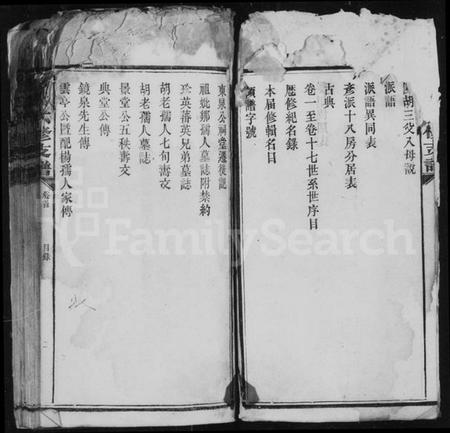 胡三爻入母說
派語
派語異同表
彥派十八房分居表
古典
卷一至卷十七世系世序目
歷修紀名錄
本届修輯名目
領譜字號
東泉公祠堂遷後記
祖妣鄭孺人墓誌附禁約
珍英蒋英兄弟墓誌
胡老孺人七旬壽文
胡老孺人墓誌
景堂公五秩壽文
典堂公傳
鏡泉先生傳
雲亭公暨配楊孺人家傳
修支譜
卷首
目錄
FamilySearch